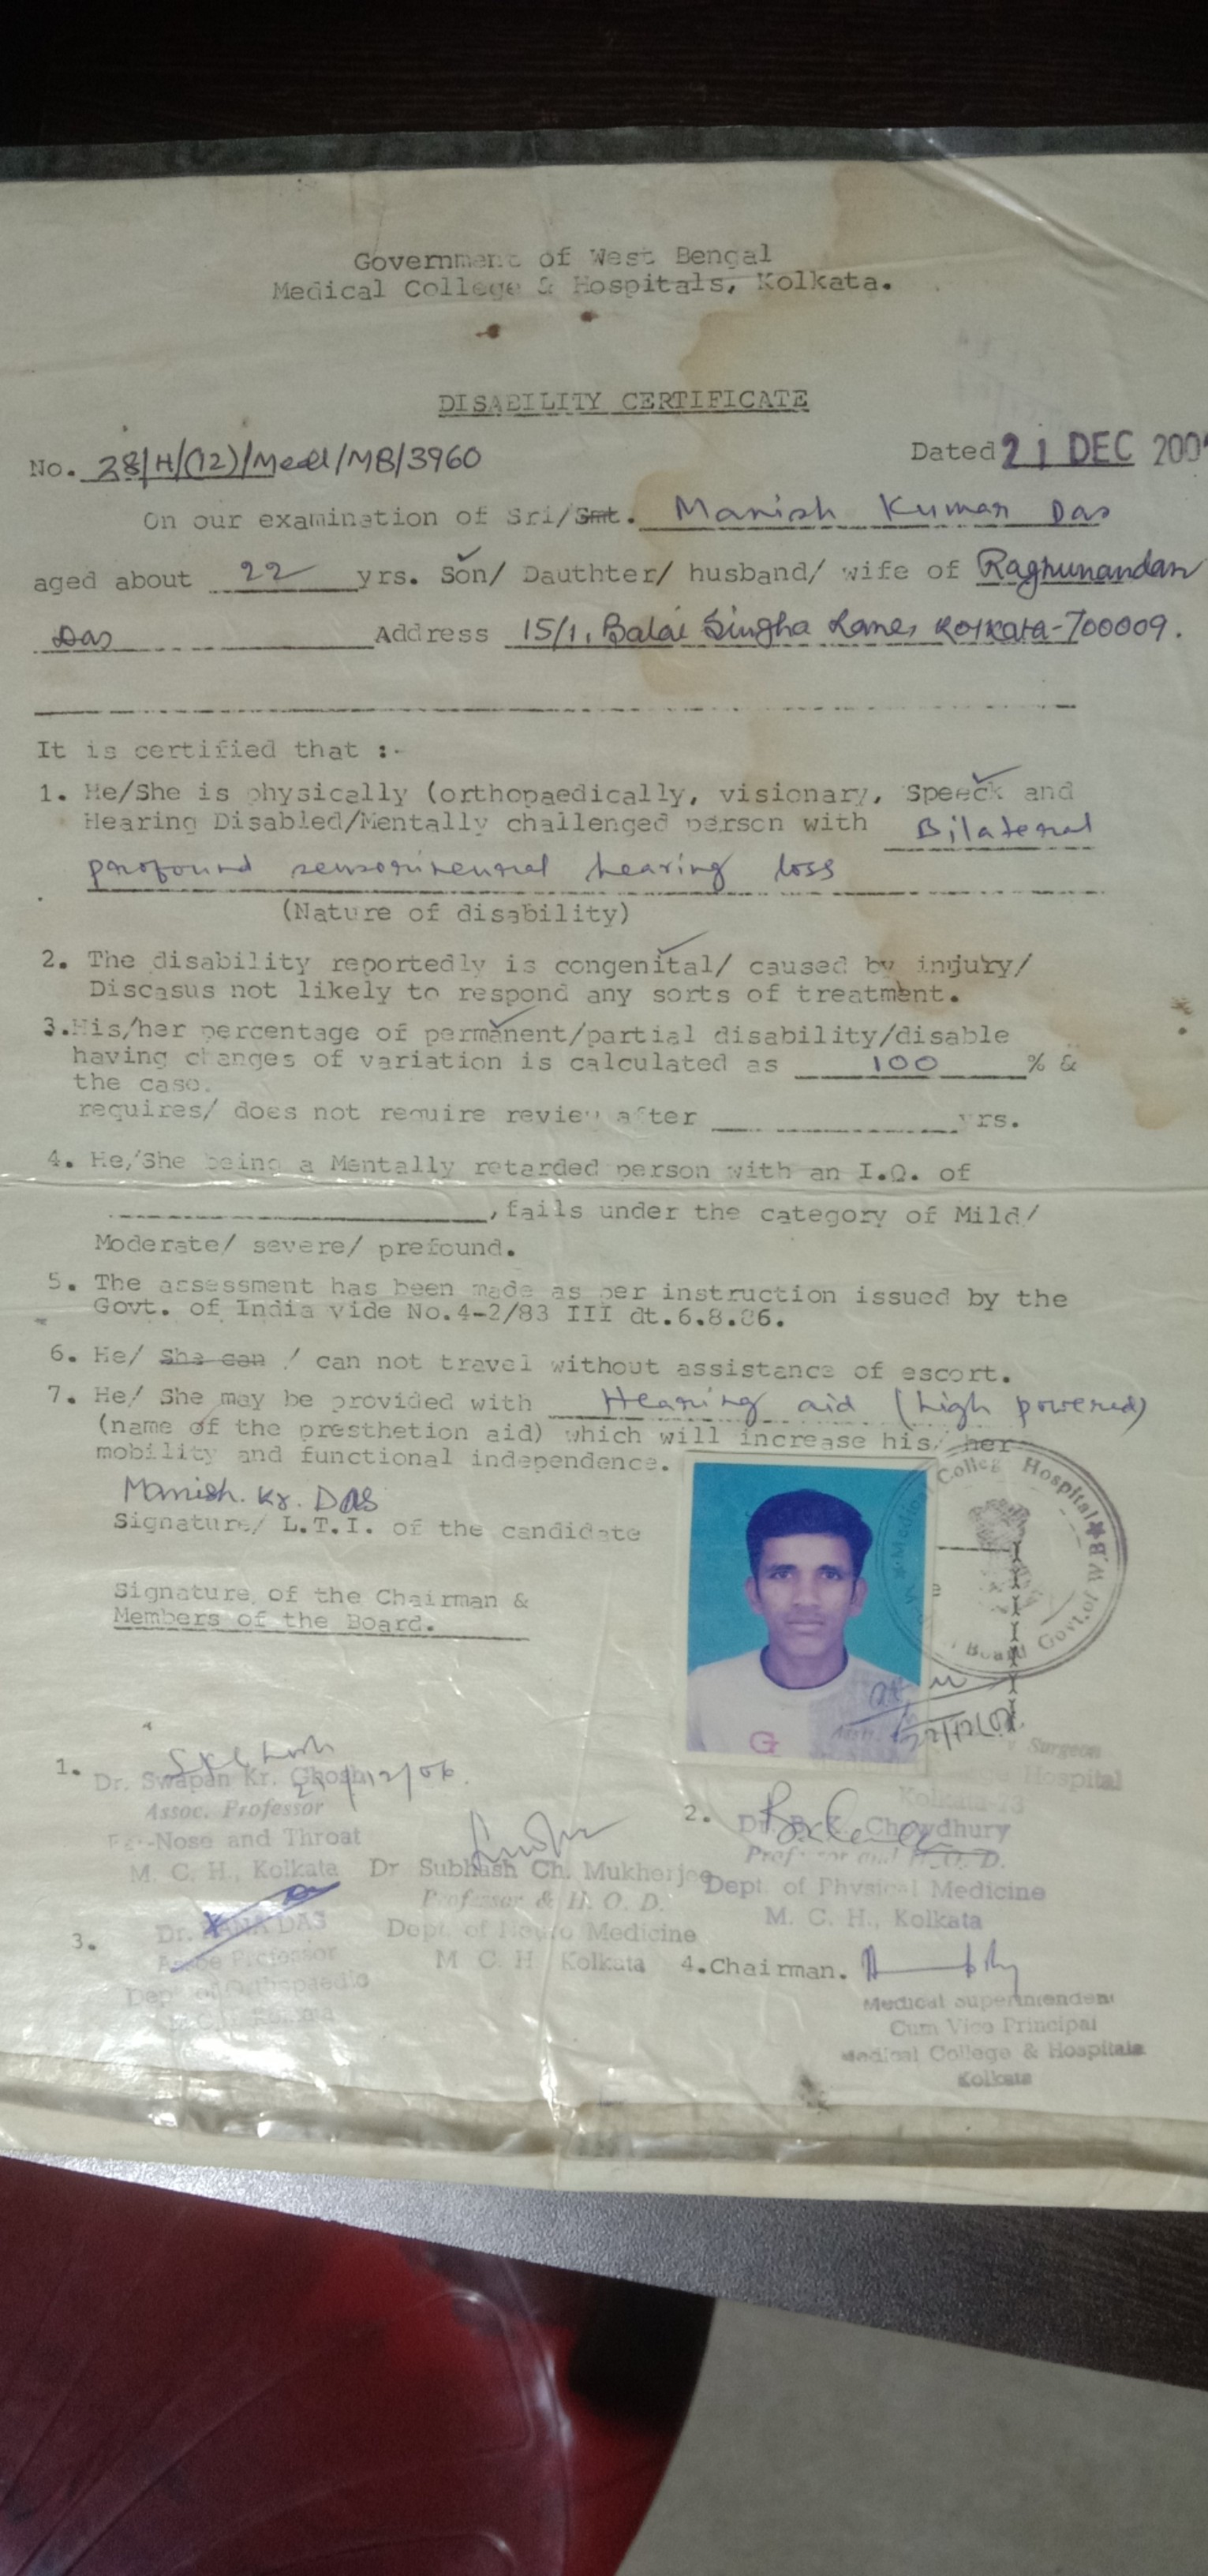 Government of West Bengal
Medical College & Hospitals, Kolkata.
DISABILITY CERTIFICATE
No. 28/H/(12)/Medl/MB/3960
Dated 21 DEC 200
On our examination of Sri/Smt. Manish Kumar Das
aged about 22 yrs. Son/ Dauthter/ husband/ wife of Raghunandan
Das Address 15/1, Balai Singha Lane, Kolkata-700009.
It is certified that :-
1. He/She is physically (orthopaedically, visionary, Speeck and
Hearing Disabled/Mentally challenged person with Bilateral
profound sensorineural hearing loss
(Nature of disability)
2. The disability reportedly is congenital/ caused by injury/
Discasus not likely to respond any sorts of treatment.
3. His/her percentage of permanent/partial disability/disable
having changes of variation is calculated as 100 % &
the case.
requires/ does not require review after yrs.
4. He/She being a Mentally retarded person with an I.Q. of
, fails under the category of Mild/
Moderate/ severe/ prefound.
5. The assessment has been made as per instruction issued by the
Govt. of India vide No.4-2/83 III dt.6.8.86.
6. He/ She can / can not travel without assistance of escort.
7. He/ She may be provided with Hearing aid (high powered)
(name of the presthetion aid) which will increase his/ her
mobility and functional independence.
Manish. Kr. DAS
Signature/ L.T.I. of the candidate
Medical College Hospital W.B.
Board Govt. of
Signature of the Chairman &
Members of the Board.
G
Surgeon
Hospital
Kolkata-73
1. Dr. Swapan Kr. Ghosh 21/12/06.
Assoc. Professor
Ear-Nose and Throat
M. C. H., Kolkata
2. Dr. B. K. Chowdhury
Professor and H. O. D.
Dept. of Physical Medicine
M. C. H., Kolkata
Dr Subhash Ch. Mukherjee
Professor & H. O. D.
Dept. of Neuro Medicine
M C H Kolkata
3. Dr. DAS
Professor
Dep. of Orthopaedic
4. Chairman.
Medical Superintendent
Cum Vice Principal
Medical College & Hospitals
Kolkata